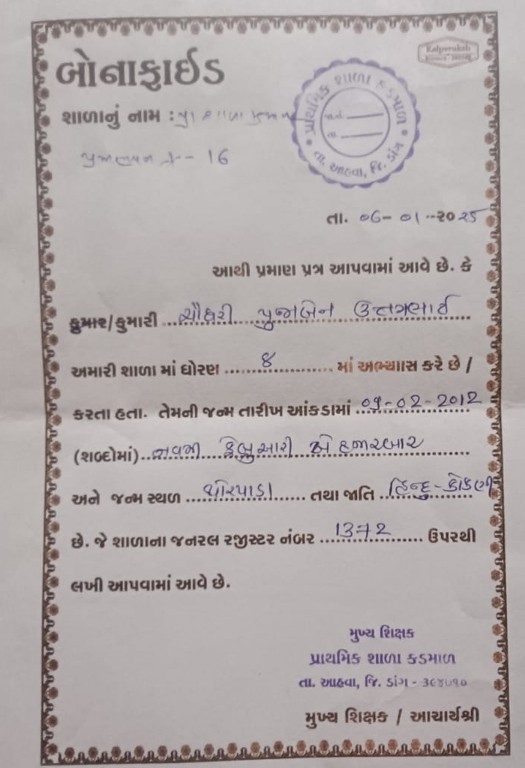 બોનાફાઈડ
Kalpvruksh
શાળાનું નામ : પ્રા શાળા કડમાળ
16
પ્રાથમિક શાળા કડમાળ
તા. આહવા, જિ. ડાંગ
તા. ૦6-૦1-૨૦25
આથી પ્રમાણ પત્ર આપવામાં આવે છે. કે
કુમાર/કુમારી ચૌધરી પુજાબેન
અમારી શાળા માં ધોરણ ૪ માં અભ્યાસ કરે છે /
કરતા હતા. તેમની જન્મ તારીખ આંકડામાં 09-02-2012
(શબ્દોમાં) નવમી ફેબ્રુઆરી બે હજારબાર
અને જન્મ સ્થળ તથા જાતિ હિન્દુ-કોકણી
છે. જે શાળાના જનરલ રજીસ્ટર નંબર 1372 ઉપરથી
લખી આપવામાં આવે છે.
મુખ્ય શિક્ષક
પ્રાથમિક શાળા કડમાળ
તા. આહવા, જિ. ડાંગ - ૩૯૪૭૧૦
મુખ્ય શિક્ષક / આચાર્યશ્રી